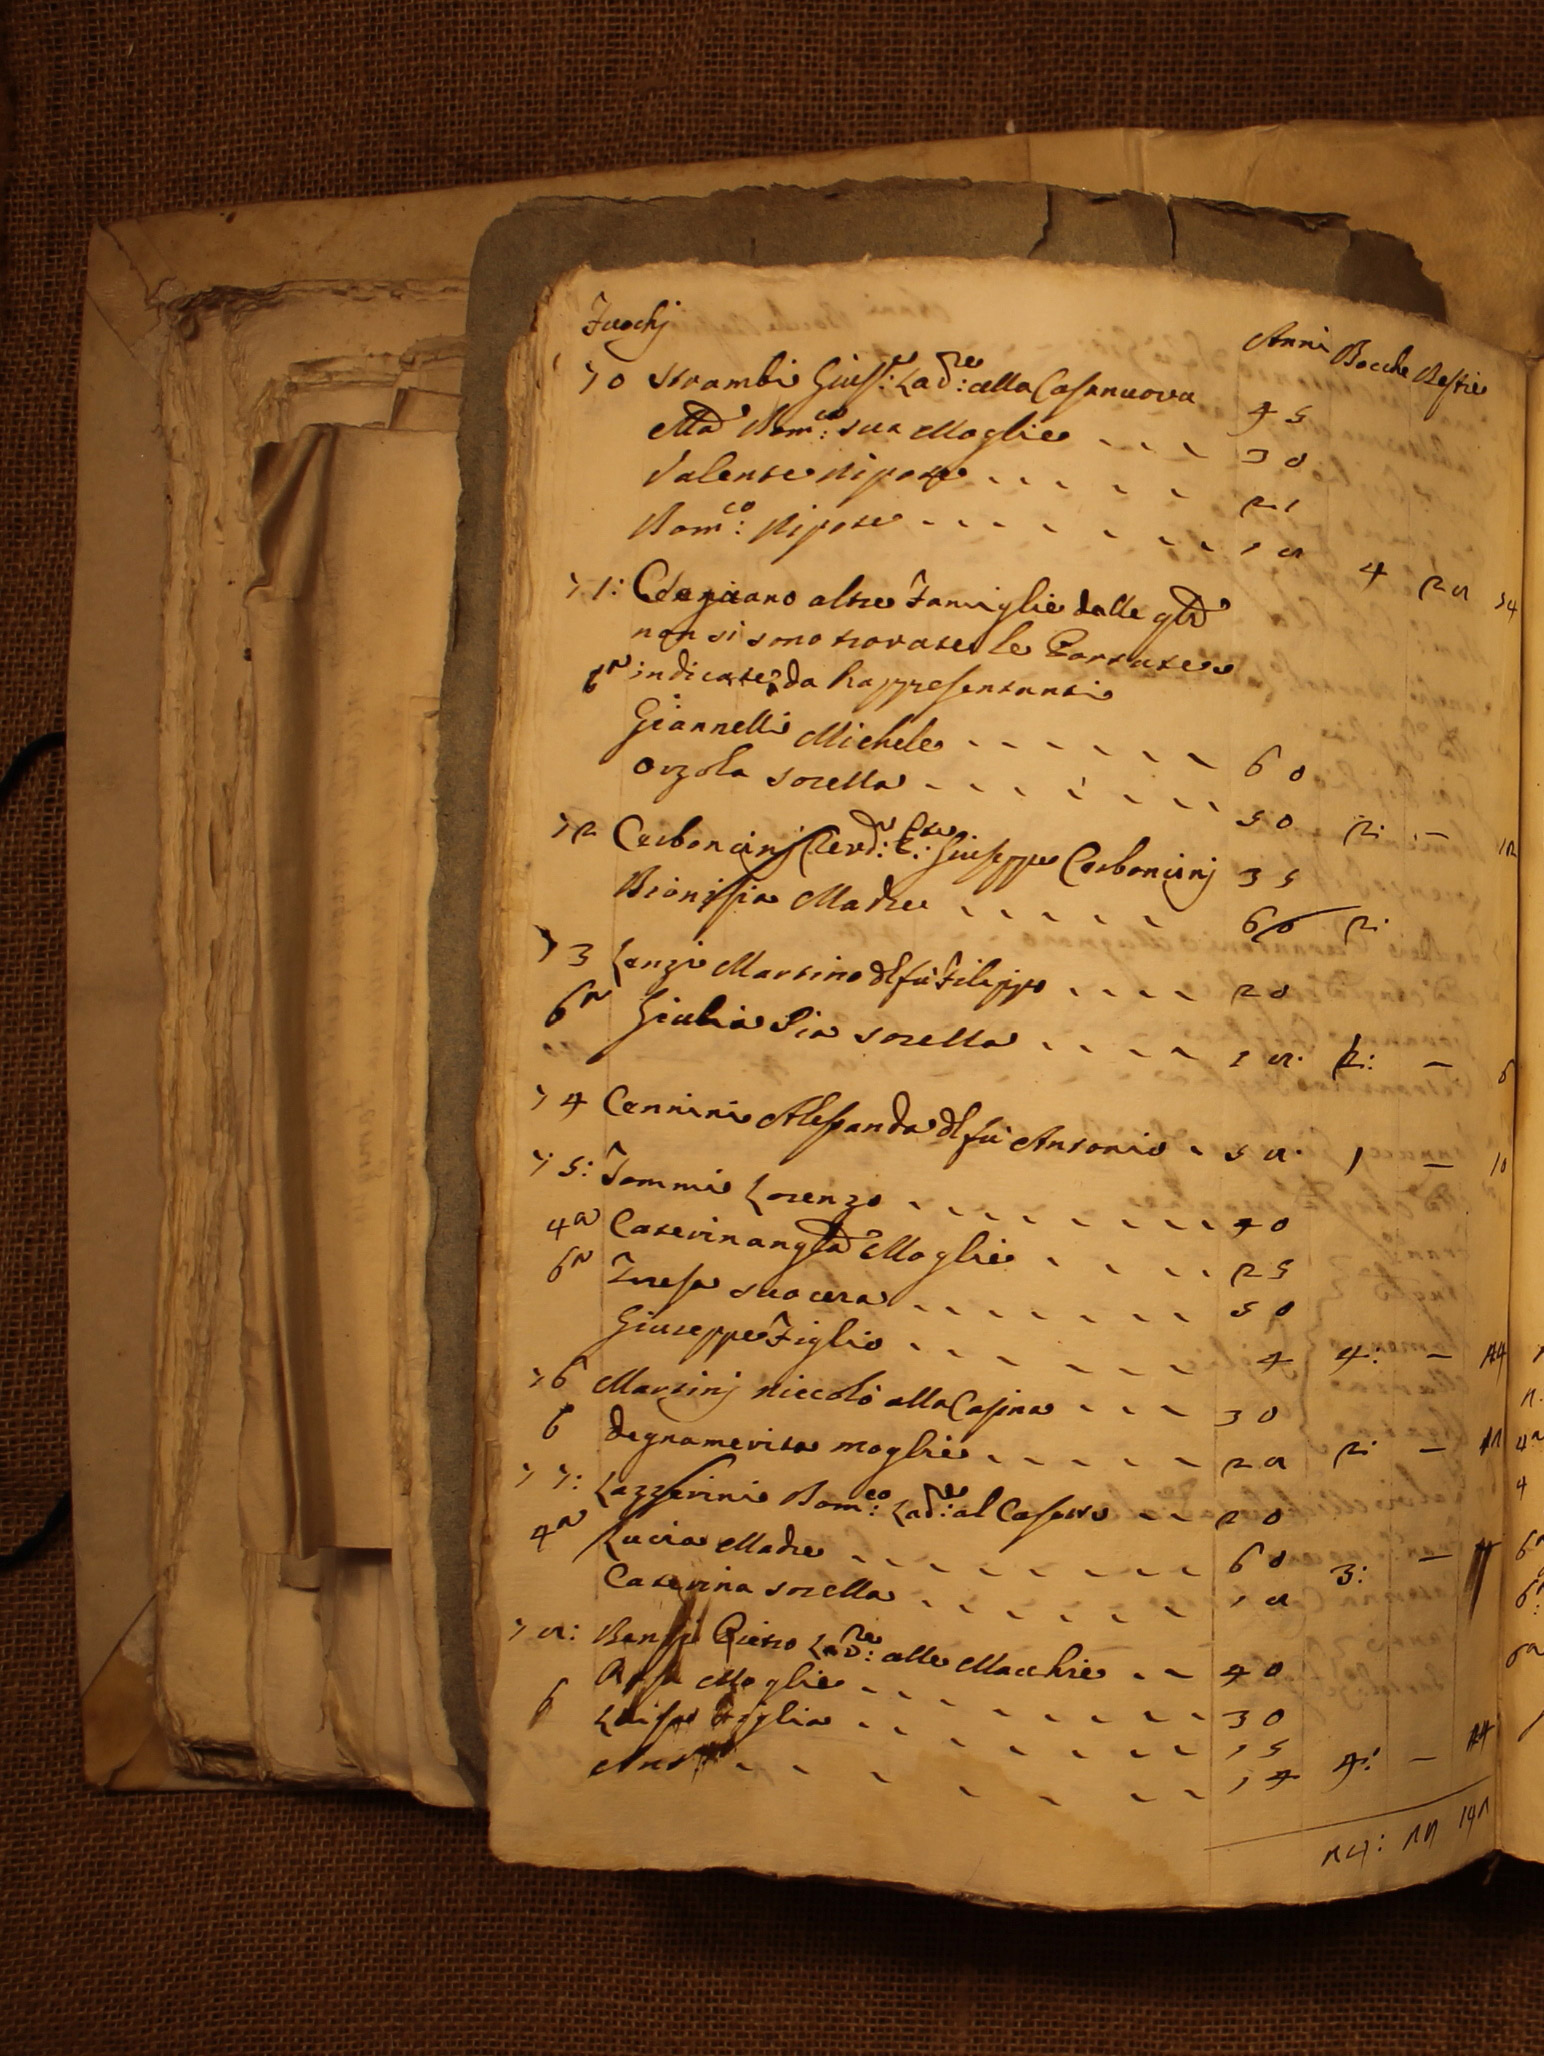 Fuochj Anni Bocche Bestie
70 Strambi Giusp.e Lad.re: alla Casanuova 45
Ma Dom.ca: sua Moglie 30
Valente Nipote 21
Dom.co: Nipote 18 4 28 34
71: Cegnano altre Famiglie dalle qli
non si sono trovate le Portate
6a indicate da Rappresentanti
Giannelli Michele 60
Orzola sorella 50 2: — 12
72 Carboncinj Revd: P.te: Giuseppe Carboncinj 35
Dionisia Madre 60 2:
73 Lenzi Martino dl fu Filippo 20
6a Giulia Pia sorella 18. 2: — 6
74 Cennini Alessandra dl fu Antonio 58. 1 — 10
75: Tommi Lorenzo 40
4a Caterinangla Moglie 25
6a Teresa suocera 50
Giuseppe Figlio 4 4: — 14
76 Martinj Niccolò alla Casina 30
6 Degnamerita moglie 28 2: —
77: Lazzerini Dom.co: Lad.re: al Casino 20
4a Lucia Madre 60 3: —
Caterina sorella 18
78: Pietro Lad.re: alle Macchie 40
Rosa Moglie 30
6 Luisa Figlia 15
14 4: — 14
24: 28 141